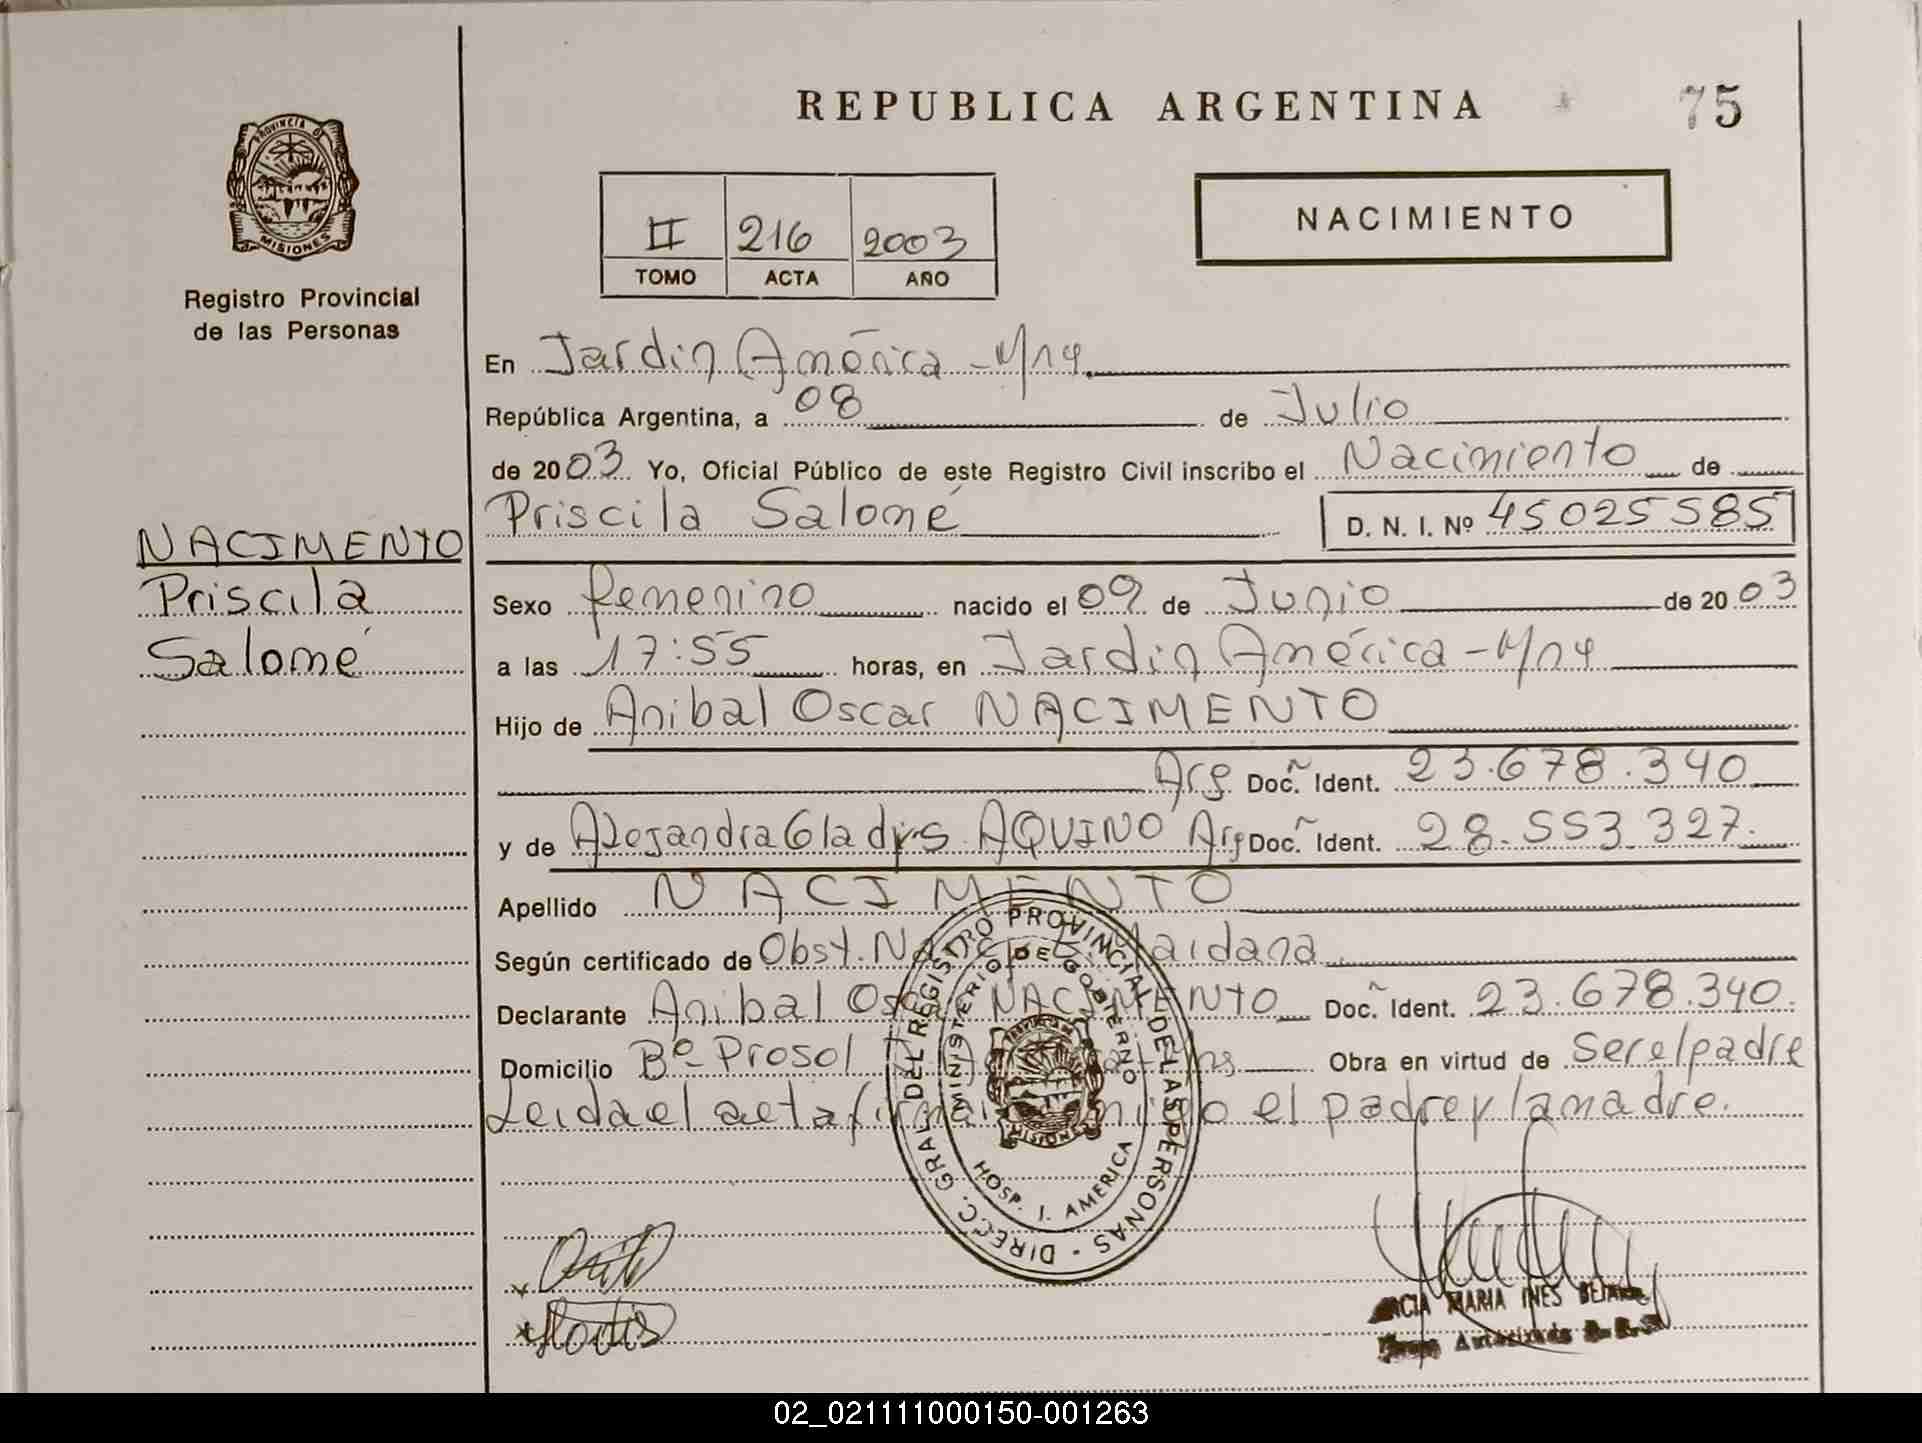 REPUBLICA ARGENTINA
75
PROVINCIA DE
MISIONES
Registro Provincial
de las Personas
II 216 2003
TOMO ACTA AÑO
NACIMIENTO
En Jardin América - Mnes
República Argentina, a 08 de Julio
de 2003 Yo, Oficial Público de este Registro Civil inscribo el Nacimiento de
Priscila Salomé D. N. I. Nº 45025585
NACIMENTO
Priscila
Salomé
Sexo femenino nacido el 09 de Junio de 2003
a las 17:55 horas, en Jardin América - Mnes
Hijo de Anibal Oscar NACIMENTO
Arg Doc. Ident. 23.678.340
y de Alejandra Gladys AQUINO Arg Doc. Ident. 28.553.327.
Apellido NACIMENTO
Según certificado de Obst. Maidana
Declarante Anibal Oscar NACIMENTO Doc. Ident. 23.678.340.
Domicilio Bº Prosol Obra en virtud de ser el padre
Leida el acta el padre y la madre.
DIRECC. GRAL DEL REGISTRO PROVINCIAL DE LAS PERSONAS
MINISTERIO DE GOBIERNO
MISIONES
HOSP. J. AMERICA
MARIA INES
02_021111000150-001263